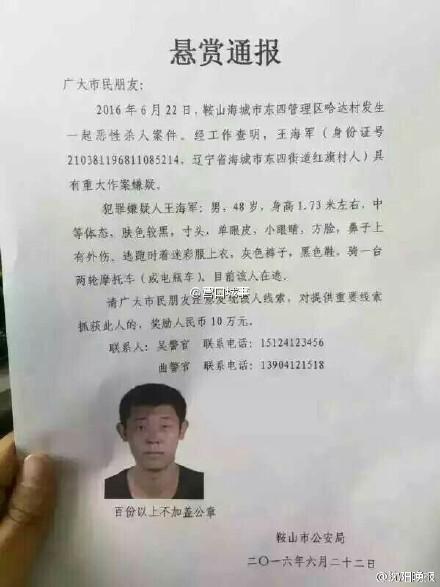 悬赏通报
广大市民朋友：
2016年6月22日，鞍山海城市东四管理区哈达村发生
一起恶性杀人案件。经工作查明，王海军（身份证号
210381196811085214，辽宁省海城市东四街道红旗村人）具
有重大作案嫌疑。
犯罪嫌疑人王海军：男，48岁，身高1.73米左右，中
等体态，肤色较黑，寸头，单眼皮，小眼睛，方脸，鼻子上
有外伤，逃跑时着迷彩服上衣，灰色裤子，黑色鞋，骑一台
两轮摩托车（或电瓶车）。目前该人在逃。
请广大市民朋友注意发现该人线索，对提供重要线索
抓获此人的，奖励人民币10万元。
联系人：吴警官 联系电话：15124123456
曲警官 联系电话：13904121518
百份以上不加盖公章
鞍山市公安局
二〇一六年六月二十二日
@沈阳晚报